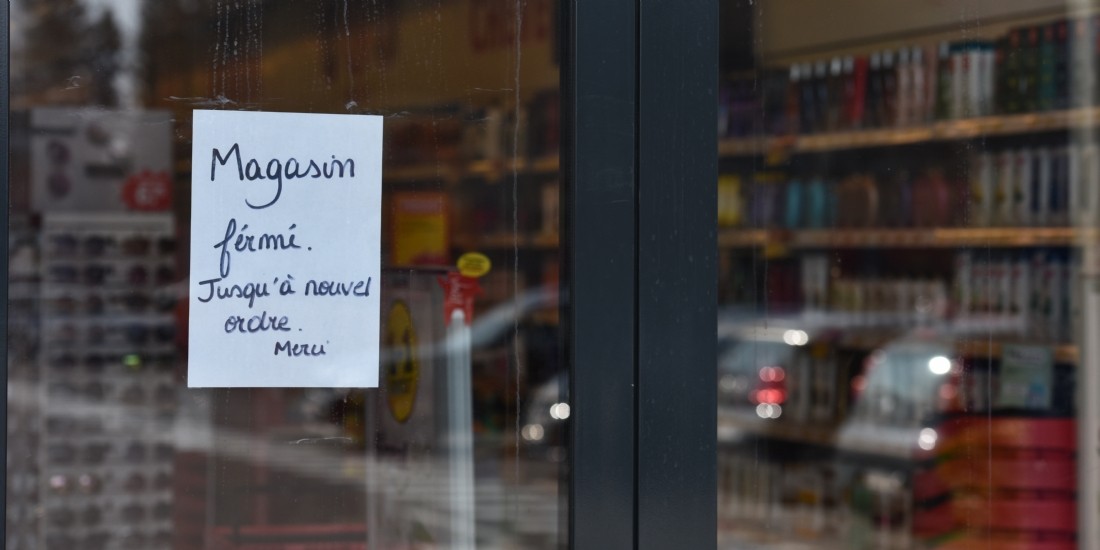 Magasin
férmé.
Jusqu'à nouvel
ordre.
Merci